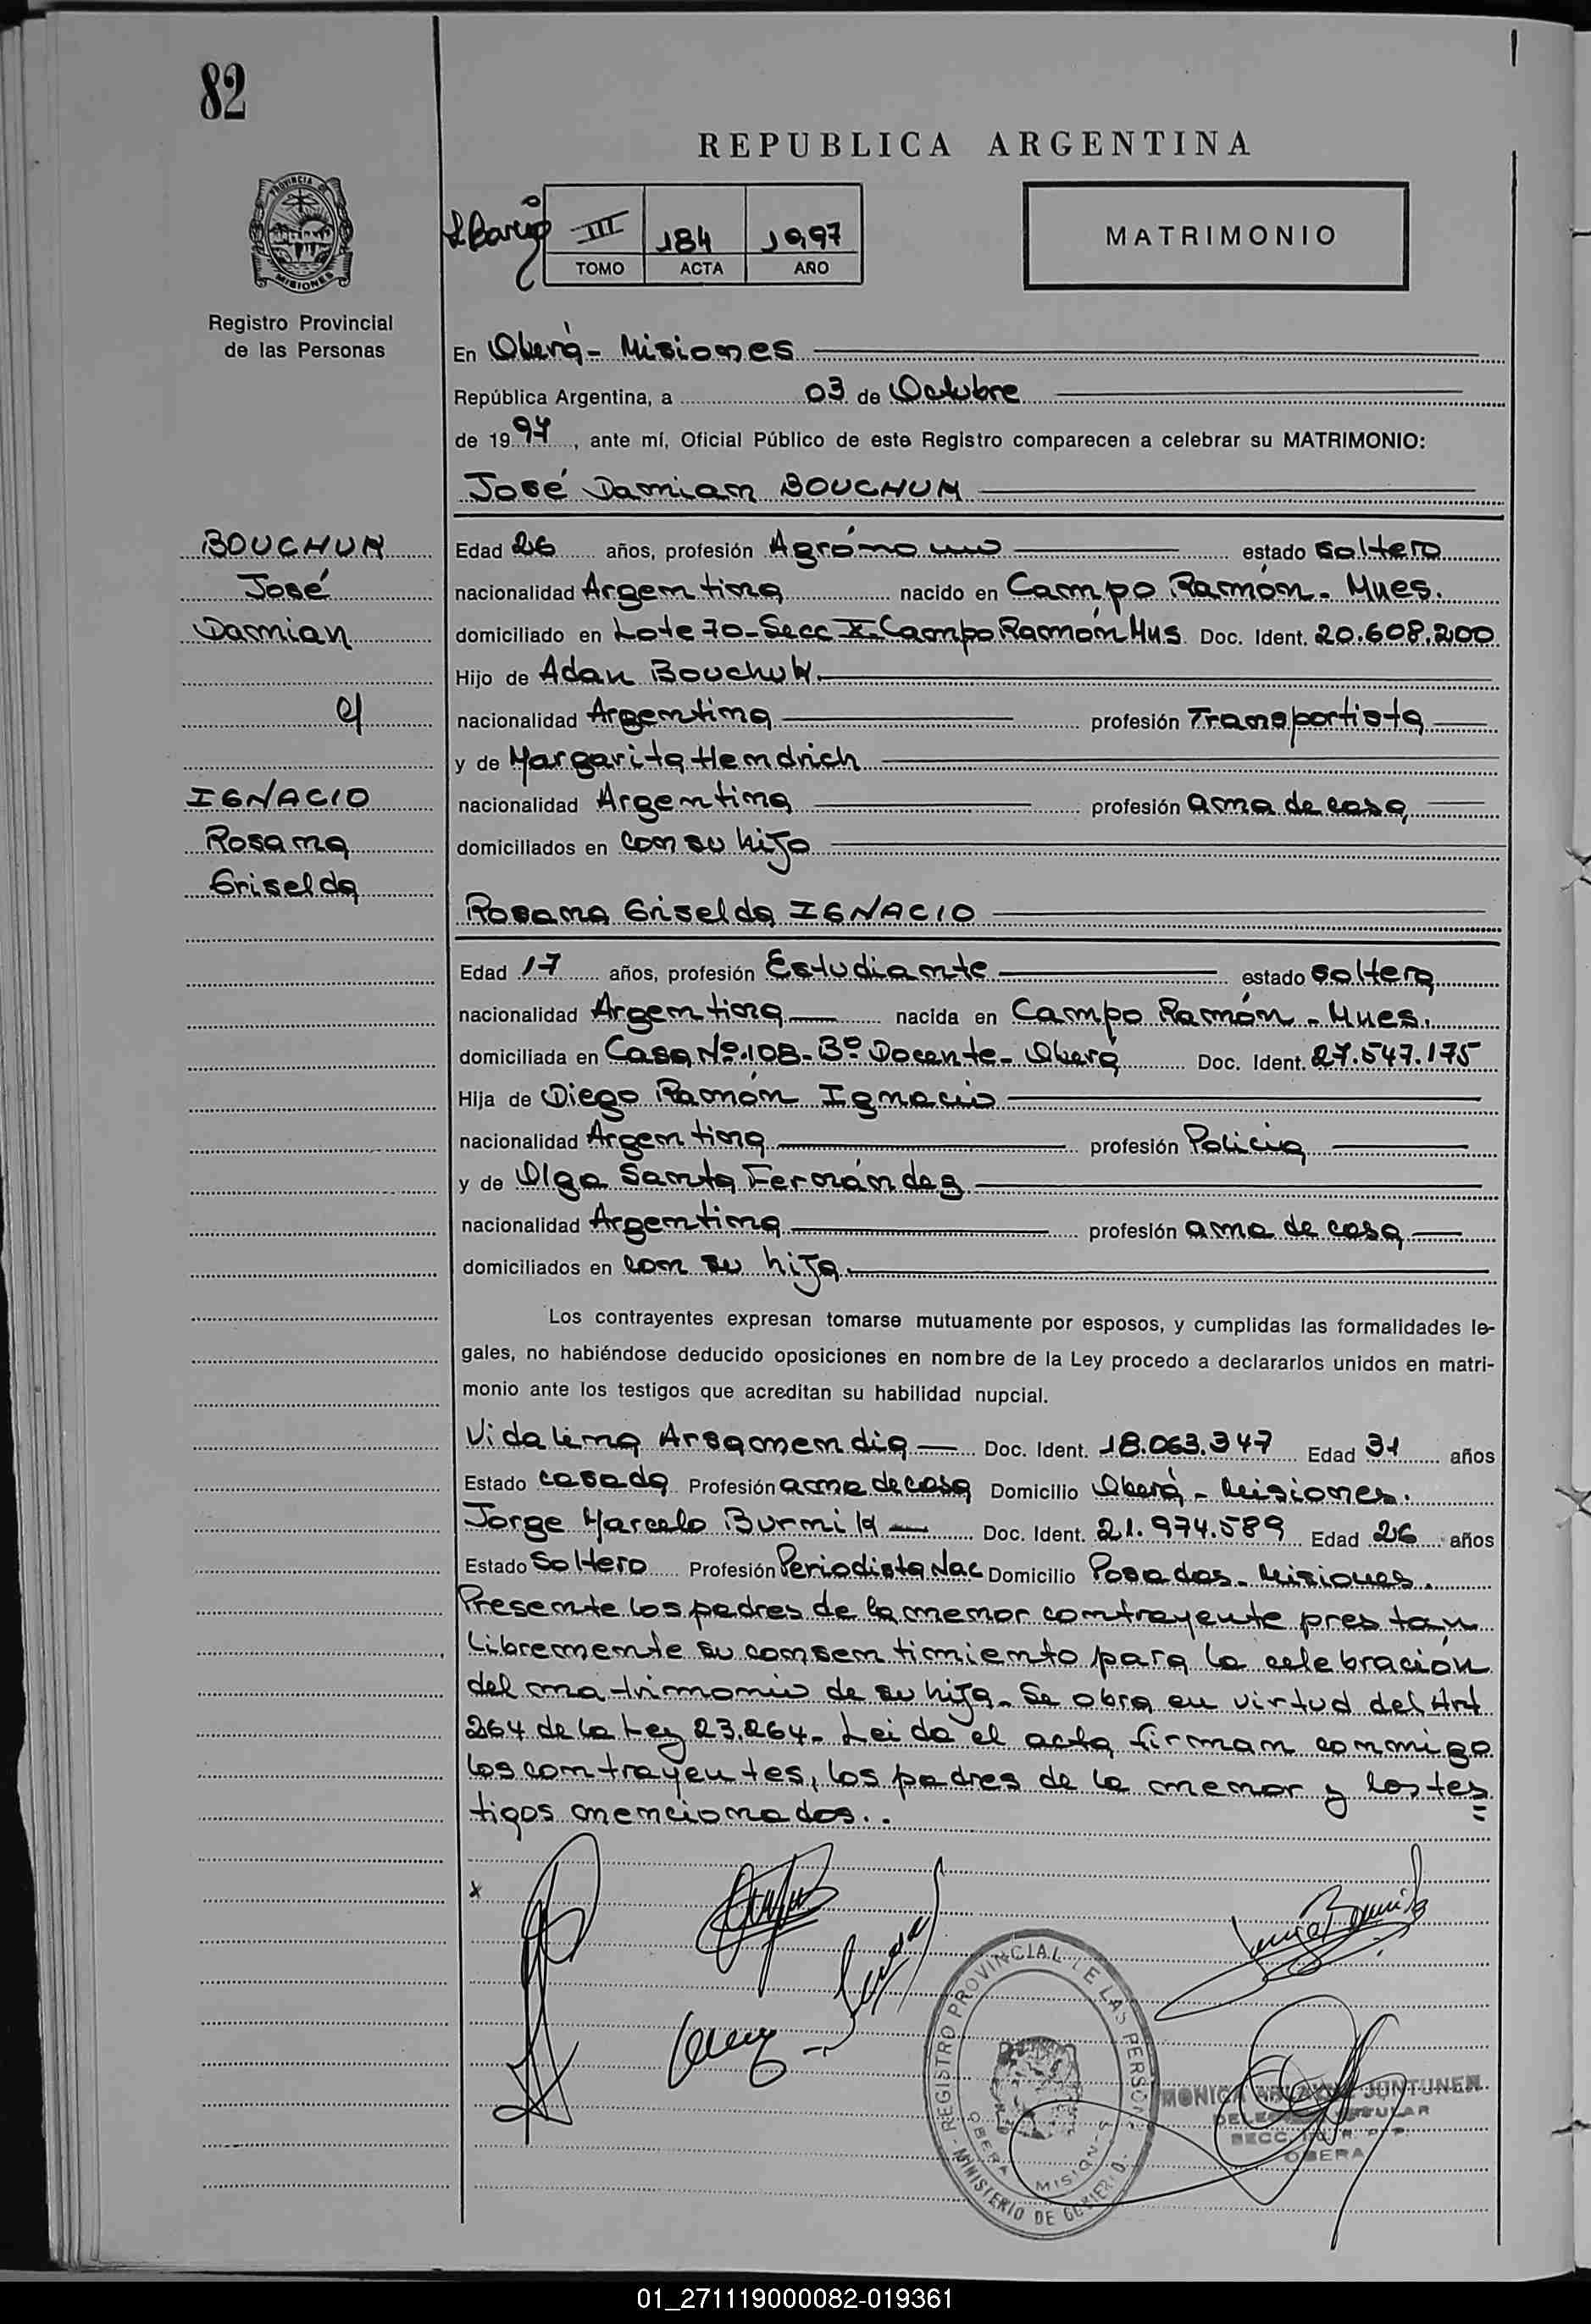 82
REPUBLICA ARGENTINA
PROVINCIA DE
MISIONES
III 184 1997
TOMO ACTA AÑO
MATRIMONIO
Registro Provincial
de las Personas
En Oberá - Misiones
República Argentina, a 03 de Octubre
de 1997, ante mí, Oficial Público de este Registro comparecen a celebrar su MATRIMONIO:
José Damian BOUCHUK
BOUCHUK
José
Damian
c/
IGNACIO
Rosana
Griselda
Edad 26 años, profesión Agrónomo estado soltero
nacionalidad Argentina nacido en Campo Ramón - Mnes.
domiciliado en Lote 70 - Secc X - Campo Ramón Mns. Doc. Ident. 20.608.200
Hijo de Adan Bouchuk
nacionalidad Argentina profesión Transportista
y de Margarita Hendrich
nacionalidad Argentina profesión ama de casa
domiciliados en con su hijo
Rosana Griselda IGNACIO
Edad 17 años, profesión Estudiante estado soltera
nacionalidad Argentina nacida en Campo Ramón - Mnes.
domiciliada en Casa Nº 108 - Bº Docente - Oberá Doc. Ident. 27.547.175
Hija de Diego Ramón Ignacio
nacionalidad Argentina profesión Policía
y de Olga Santa Fernández
nacionalidad Argentina profesión ama de casa
domiciliados en con su hija
Los contrayentes expresan tomarse mutuamente por esposos, y cumplidas las formalidades le-
gales, no habiéndose deducido oposiciones en nombre de la Ley procedo a declararlos unidos en matri-
monio ante los testigos que acreditan su habilidad nupcial.
Vidalina Arsamendia Doc. Ident. 18.063.347 Edad 31 años
Estado casada Profesión ama de casa Domicilio Oberá - Misiones.
Jorge Marcelo Burnik Doc. Ident. 21.974.589 Edad 26 años
Estado Soltero Profesión Periodista Nac Domicilio Posadas - Misiones.
Presente los padres de la menor contrayente prestan
libremente su consentimiento para la celebración
del matrimonio de su hija. Se obra en virtud del Art
264 de la Ley 23.264. Leida el acta firman conmigo
los contrayentes, los padres de la menor y los tes=
tigos mencionados..
REGISTRO PROVINCIAL DE LAS PERSONAS
OBERA MISIONES
MINISTERIO DE GOBIERNO
MONICA JUNTUNEN
TITULAR
SECC.
OBERA
01_271119000082-019361